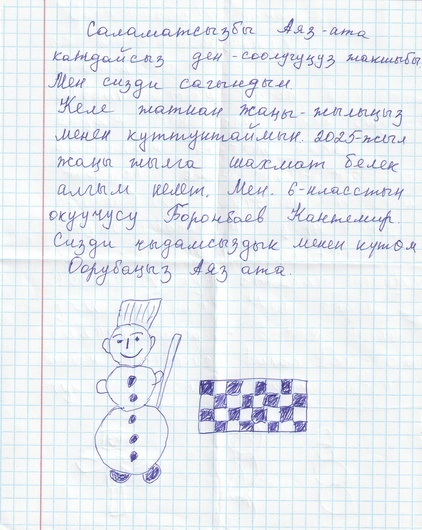 Саламатсызбы Аяз-ата
кандайсыз ден-соолугуңуз жакшыбы
Мен сизди сагындым.
Келе жаткан жаңы-жылыңыз
менен куттуктаймын. 2025-жыл
жаңы жылга шахмат белек
алгым келет. Мен 6-класстын
окуучусу Боронбаев Кантемир
Сизди чыдамсыздык менен күтөм
Оорубаңыз Аяз ата.